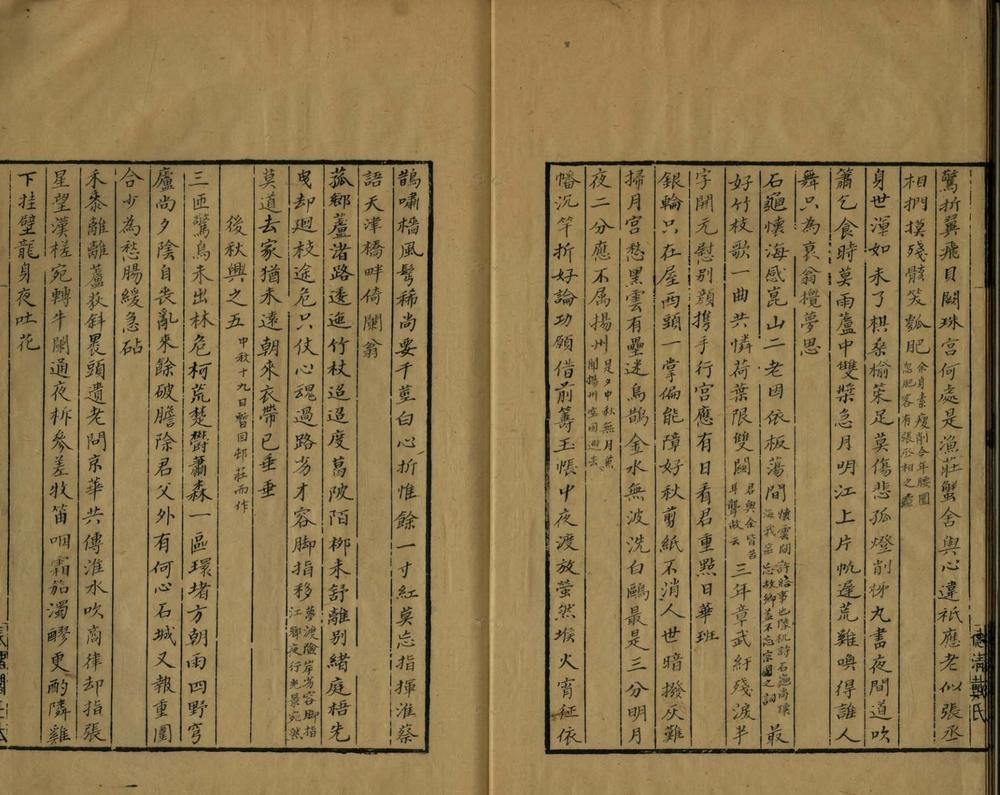 驚折翼飛貝闕珠宮何處是漁莊蟹舍與心違衹應老似張丞
相捫摸殘骸笑瓠肥余身素瘦削今年腰圍忽肥客有張丞相之
身世渾如未了棋桑榆策足莫傷悲孤燈削柹丸書夜間道吹
簫乞食時莫雨蘆中雙槳急月明江上片帆遲荒雞喚得誰人
舞只為衰翁攪夢思
石龜懷海感崑山二老因依板蕩間懷雲間許給事也陸机詩石龜尚懷海我寧忘故鄉蓋不忘宗國之詞最
好竹枝歌一曲共憐荷葉限雙關君與余皆苦耳聾故云三年章武紆殘淚半
字開元慰別顏攜手行宮應有日看君重點日華班
銀輪只在屋西頭一掌偏能障好秋剪紙不消人世暗撥灰難
掃月宮愁黑雲有壘迷烏鵲金水無波洗白鷗最是三分明月
夜二分應不属揚州是夕中秋無月兼聞揚州
幡沉竿折好論功願借前籌玉帳中夜渡放螢然堠火宵征依
鵲嘯檣風髩稀尚要千莖白心折惟餘一寸紅莫忘指揮淮蔡
語天津橋畔倚闌翁
菰鄉蘆渚路逶迤竹杖迢迢度萬陂陌栁未舒離別緒庭梧先
曳却廻枝途危只仗心魂過路劣才容脚指移夢渡險岸劣容脚指江鄉夜行光景宛然
莫道去家猶未遠朝來衣帶已垂垂
後秋興之五中秋十九日暫回邨莊而作
三匝驚烏未出林危柯荒楚欝蕭森一區環堵方朝雨四野穹
廬尚夕陰自喪亂來餘破膽除君父外有何心石城又報重圍
合少為愁腸緩急砧
禾黍離離蘆荻斜畏頭遺老問京華共傳淮水吹商律却指張
星望漢槎宛轉牛闌通夜柝參差牧笛咽霜笳濁醪更酌隣雞
下挂壁龍身夜吐花